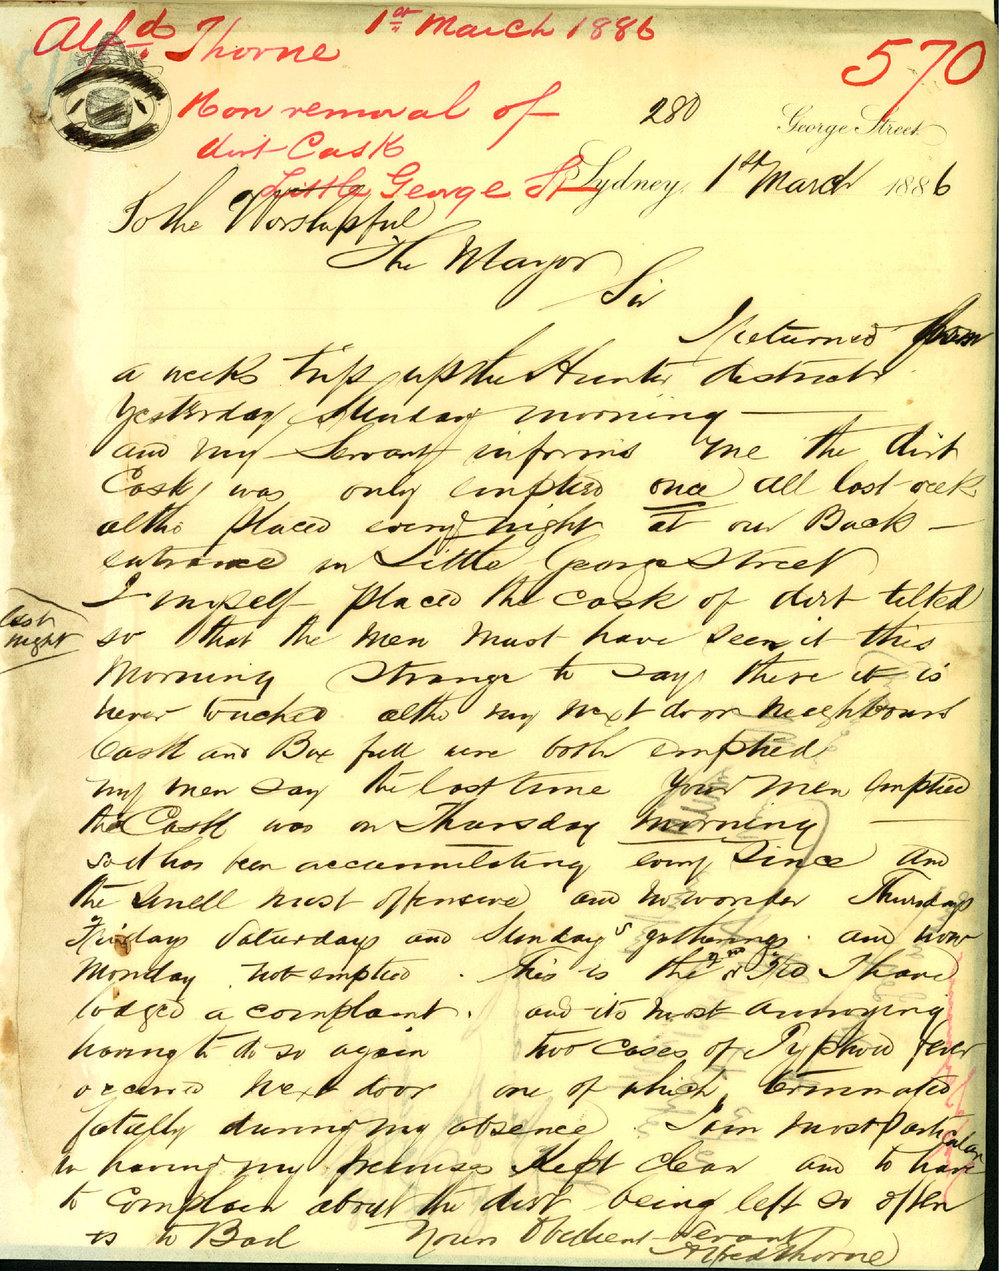 Alfd Thorne 1st March 1886
570
Non removal of
dirt Cask
Little George St
280 George Street
Sydney, 1st March 1886
To the Worshipful
The Mayor
Sir
I returned from
a weeks trip up the Hunter district
Yesterday Sunday morning —
and my Servant informs me the dirt
Cask was only emptied once all last week
altho placed every night at our Back —
entrance in Little George Street
I myself placed the cask of dirt tilted
last night
so that the men must have seen it this
Morning strange to say there it is
never touched altho my next door neighbours
Cask and Box full were both emptied
my men say the last time Your men emptied
the Cask was on Thursday morning —
so it has been accumulating every since and
the smell most offensive and no wonder Thursdays
Fridays Saturdays and Sunday's gatherings. and now
Monday not emptied. This is the 2nd or 3rd I have
lodged a complaint. and its most annoying
having to do so again two cases of Typhoid fever
occurred next door one of which terminated
fatally during my absence. I am most particular
in having my premises kept clean and to have
to complain about the dirt being left so often
is to Bad Yours Obedient Servant
Alfred Thorne